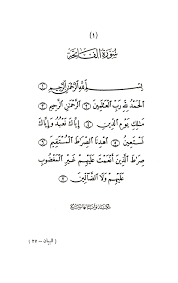 (١)
سُورَةُ الفَاتِحَةِ
بِسْمِ ٱللَّهِ ٱلرَّحْمَٰنِ ٱلرَّحِيمِ ١
ٱلْحَمْدُ لِلَّهِ رَبِّ ٱلْعَٰلَمِينَ ٢ ٱلرَّحْمَٰنِ ٱلرَّحِيمِ ٣
مَٰلِكِ يَوْمِ ٱلدِّينِ ٤ إِيَّاكَ نَعْبُدُ وَإِيَّاكَ
نَسْتَعِينُ ٥ ٱهْدِنَا ٱلصِّرَٰطَ ٱلْمُسْتَقِيمَ ٦
صِرَٰطَ ٱلَّذِينَ أَنْعَمْتَ عَلَيْهِمْ غَيْرِ ٱلْمَغْضُوبِ
عَلَيْهِمْ وَلَا ٱلضَّآلِّينَ ٧
البيان